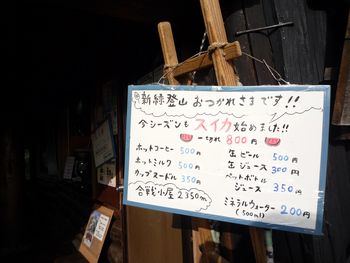 新緑登山 おつかれさまです!!
今シーズンも スイカ始めました!!
一切れ 800円
ホットコーヒー 500円
ホットミルク 500円
カップヌードル 350円
合戦小屋 2350m
缶ビール 500円
缶ジュース 300円
ペットボトル
ジュース 350円
ミネラルウォーター
(500ml) 200円